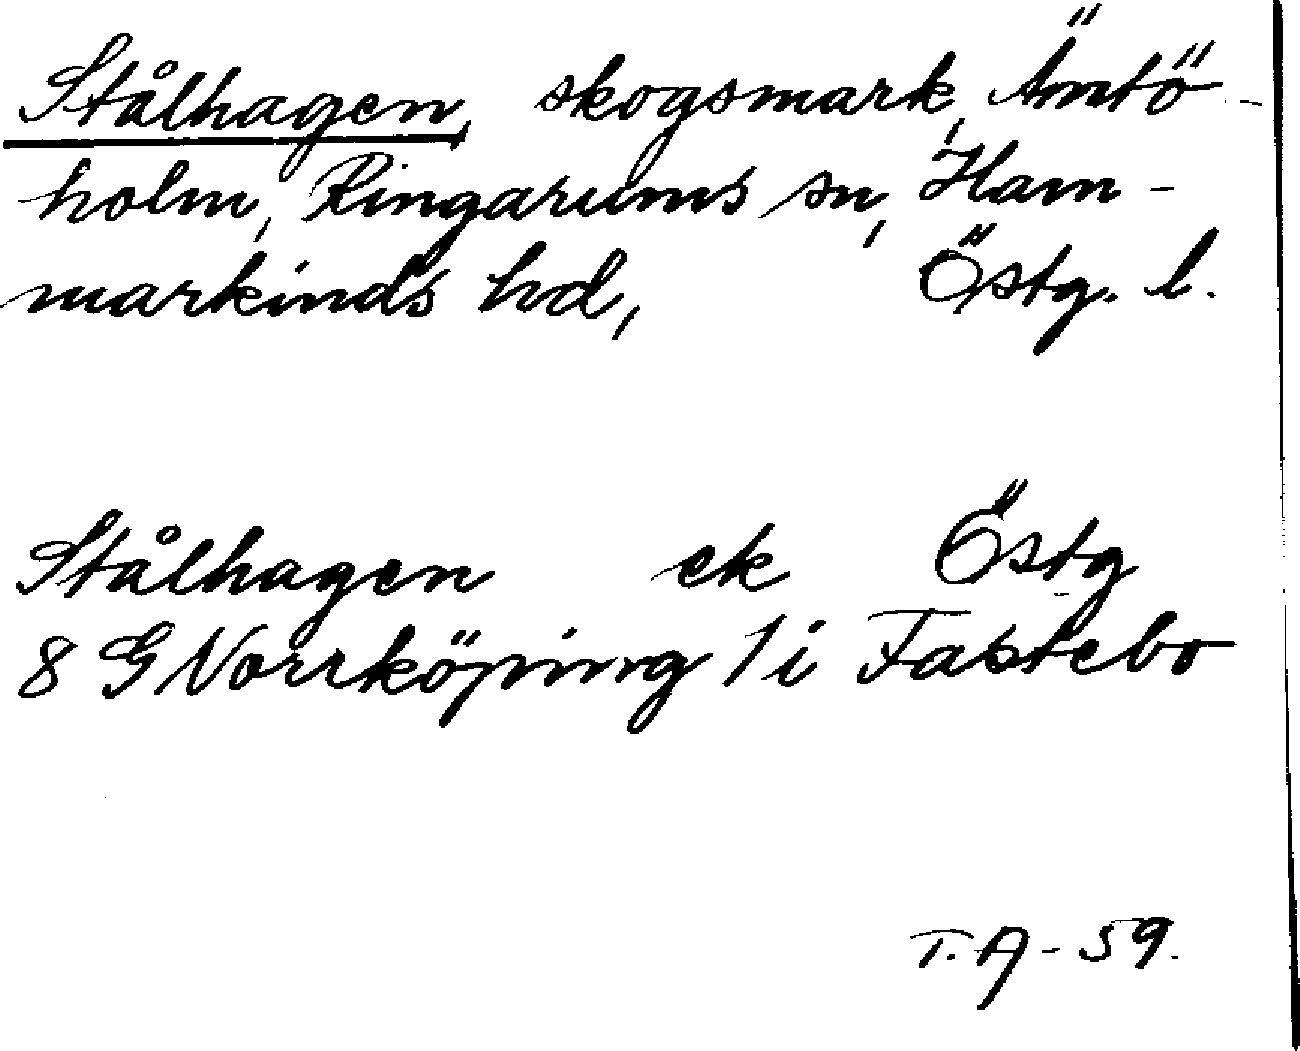 Stålhagen, skogsmark, Ämtö-
holm, Ringarums sn, Ham-
markinds hd, Östg. l.
Stålhagen ek Östg
8 G Norrköping 1 i Fastebo
T. A - 59.